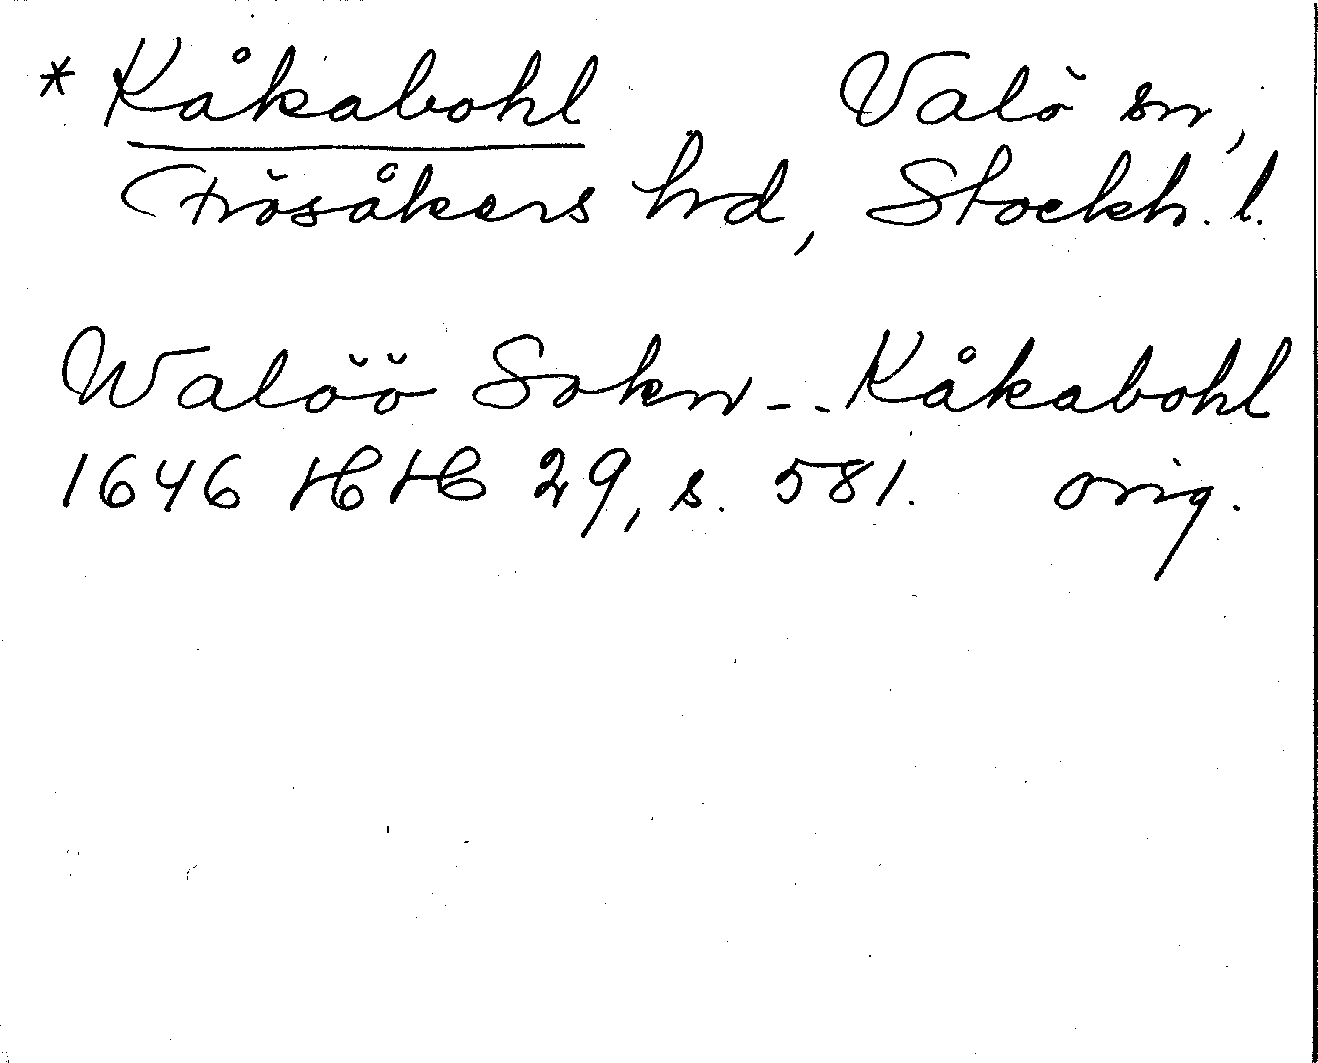 * Kåkabohl Valö sn,
Frösåkers hd, Stockh. l.
Walöö Sokn -- Kåkabohl
1646 HH 29, s. 581. orig.